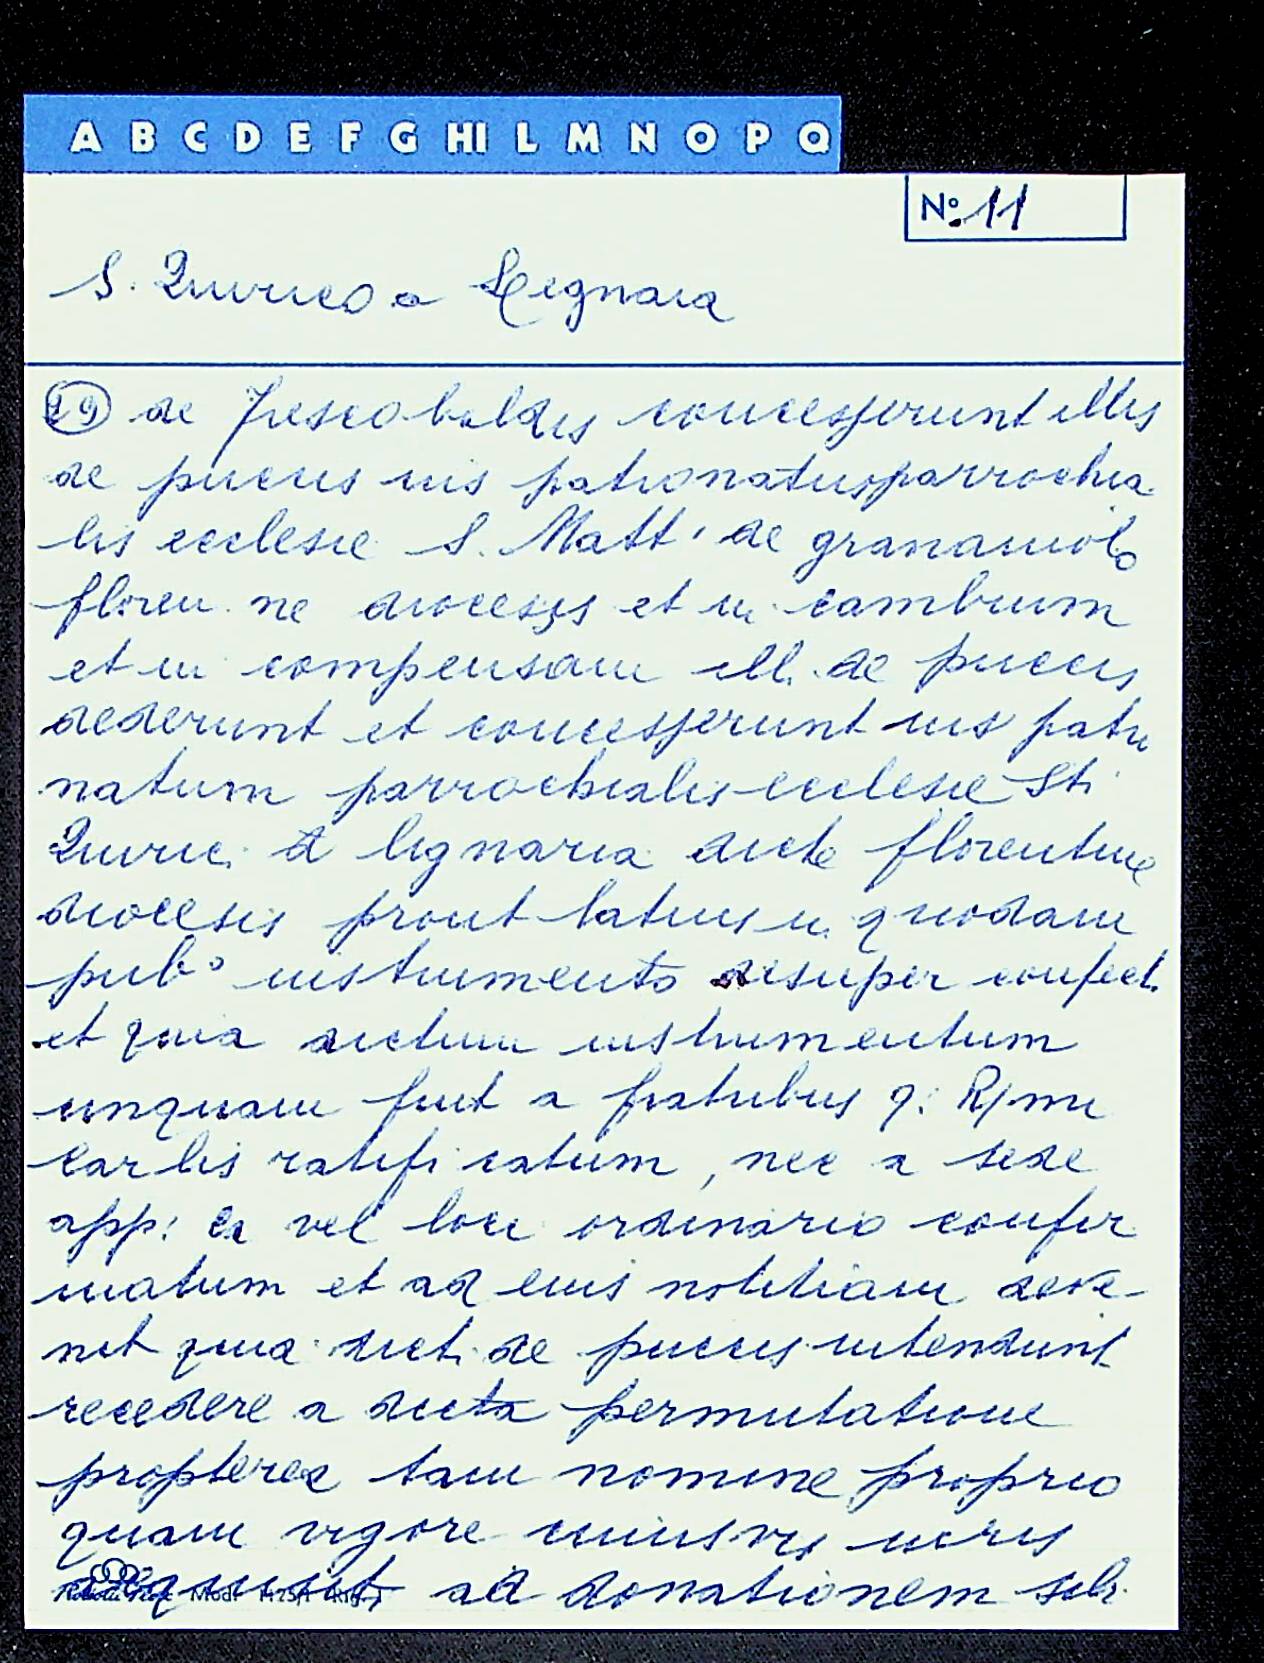 A B C D E F G HI L M N O P Q
No. 11
S. Quirico a Legnaia
29 de Frescobaldis concesserunt illis
de pucciis ius patronatus parrochia
lis ecclesie S. Matt' de granaiolo
floren. ne diocesis et in cambium
et in compensam ill. de pucciis
dederunt et concesserunt ius patro
natum parrochialis ecclesie Sti
Quirici d lignaria dicte florentine
diocesis prout latius in quodam
pubo instrumento desuper confect.
et quia dictum instrumentum
unquam fuit a fratribus q. R/mi
Carlis ratificatum, nec a sede
app: ca vel loci ordinario confir
matum et ad eius notitiam deve-
nit quia dict. de pucciis intendunt
recedere a dicta permutatione
propterea tam nomine proprio
quam vigore cuiusvis iuris
ad donationem